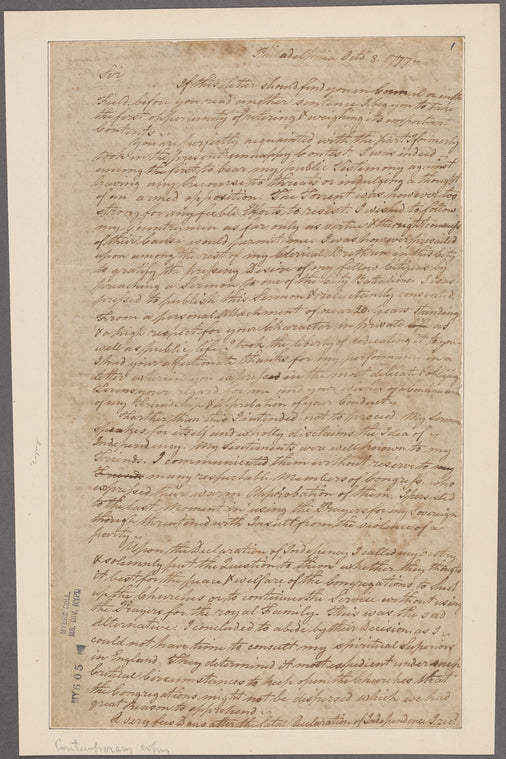 1
Philadelphia Octr. 8. 1777
Sir
If this letter should find you in Council or in the
Field, before you read another sentence I beg you to take
the first opportunity of retiring & weighing its important
Contents.
You are perfectly acquainted with the part I formerly
took in the present unhappy Contest. I was indeed
among the first to bear my public Testimony against
having any Recourse to threats or indulging a thought
of an armed opposition. The Torrent was however too
strong for my feeble Efforts to resist. I wished to follow
my Countrymen as far only as virtue & the righteousness
of their Cause would permit me. I was however prevailed
upon among the rest of my Clerical Brethren in this City
to gratify the pressing Desire of my fellow Citizens by
preaching a Sermon to one of the City Battalions. I was
pressed to publish this Sermon & reluctantly consented.
From a personal Attachment of near 20 years Standing
& a high respect for your Character in private as
well as public life I took the liberty of dedicating it to you
I had your affectionate thanks for my performance in a
letter wherein you expressed in the most delicate & obliging
Terms your regard for me and your wishes of a Continuance
of my Friendship & Approbation of your Conduct
Farther than this I intended not to proceed. My Sermon
speakes for itself and wholly disclaims the Idea of
Independency. My Sentiments were well known to my
Friends. I communicated them without reserve to
many respectable Members of Congress, who
expressed their warm Approbation of them. I persisted
to the last Moment in using the Prayers for my Sovereign
though threatened with Insult from the violence of a
party.
Upon the Declaration of Indepency I called my vestry
& solemnly put the Question to them whether they thought
it best for the peace & welfare of the Congregations to shut
up the Churches or to continue the Service without using
the Prayers for the royal Family. This was the sad
alternative. I concluded to abide by their Decision, as I
could not have time to consult my Spiritual Superiors
in England. They determined it most expedient under such
Critical Circumstances to keep open the Churches that
the Congregations might not be dispersed which we had
great Reason to apprehend
A very few Days after the fatal Declaration of Independence I recd
MYERS COLL.
MS. DIV. NYPL
MY 605
Contemporary copy